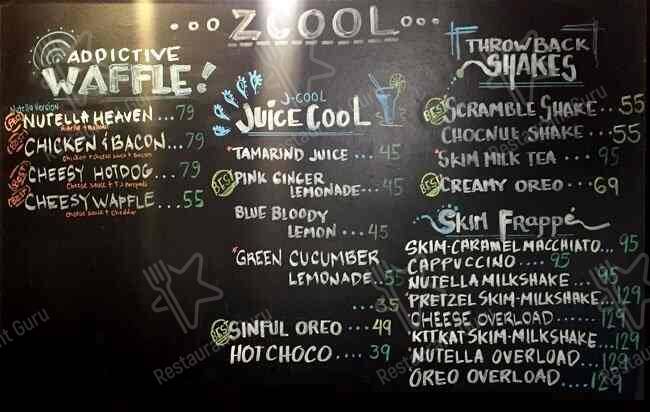 ZCOOL
ADDICTIVE
WAFFLE!
Nutella Version
NUTELLA HEAVEN...79
CHICKEN & BACON...79
Chicken + Cheese Sauce + Bacon
CHEESY HOTDOG...79
CHEESY WAFFLE....55
Cheese Sauce + Cheddar
J-COOL
JUICE COOL
*TAMARIND JUICE ... 45
BEST
PINK GINGER
LEMONADE....45
BLUE BLOODY
LEMON ...45
*GREEN CUCUMBER
LEMONADE..55
...35
BEST
SINFUL OREO ... 49
HOT CHOCO .... 39
THROWBACK
SHAKES
BEST
SCRAMBLE SHAKE...55
CHOCNUT SHAKE....55
*SKIM MILK TEA ... 95
BEST
CREAMY OREO ...69
SKIM FRAPPÉ
SKIM-CARAMEL MACCHIATO...95
CAPPUCCINO .... 95
NUTELLA MILKSHAKE ... 95
*PRETZEL SKIM-MILKSHAKE...129
*CHEESE OVERLOAD ....129
*KITKAT SKIM-MILKSHAKE...129
*NUTELLA OVERLOAD....129
*OREO OVERLOAD.....129
Restaurant Guru
Restaurant Guru
Restaurant Guru
Restaurant Guru